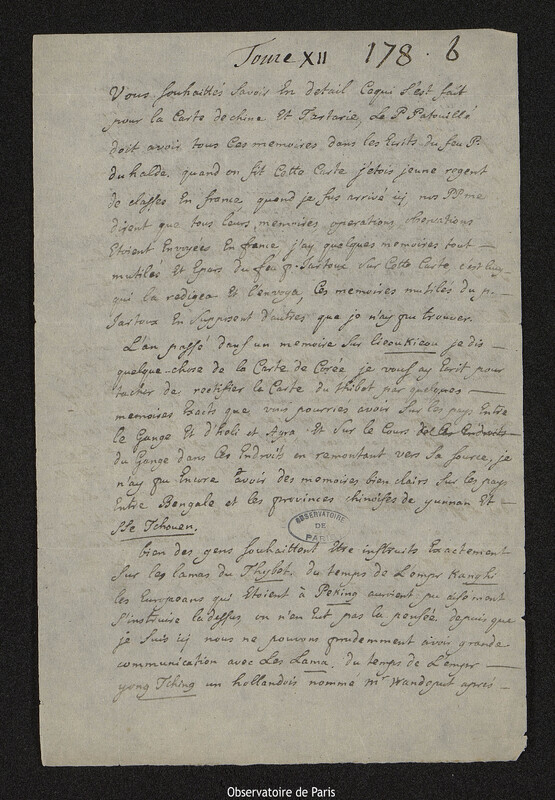 Tome XII 178. b
Vous souhaittés savoir En detail Cequi s'est fait
pour la Carte de chine Et Tartarie, Le P. Patouillé
doit avoir tous Ces memoires dans les Ecrits du feu P.
duhalde. quand on fit Cette Carte j'etois jeune regent
de classes En france, quand je fus arrivé icy nos PP me
dirent que tous leurs memoires operations observations
Etoient Envoyees En france j'ay quelques memoires tout
mutilés Et Epars du feu p. Jartoux Sur Cette Carte, c'est luy
qui la redigea Et l'envoya, Ces memoires mutilés du p.
Jartoux En Supposent d'autres que je n'ay pu trouver.
L'an passé dans un memoire sur lieoukieou je dis
quelque chose de la Carte de Corée je vous ay Ecrit pour
tacher de rectifier la Carte du thibet par quelques
memoires Exacts que vous pourries avoir Sur les pays Entre
le Gange Et d'holi et Agra Et Sur le Cours
du Gange dans Ces Endroits en remontant vers Sa Source, je
n'ay pu Encore avoir des memoires bien clairs Sur les pays
Entre Bengale et les provinces chinoises de yunnan Et
SSe Tchouen.
OBSERVATOIRE DE PARIS
bien des gens souhaittent Etre instruits Exactement
Sur les lamas du Thybet. du temps de L'empr Kanghi
les Europeans qui Etoient à Peking auroient pu aisément
S'instruire la'dessus, on n'en Eut pas la pensée depuis que
je Suis icy nous ne pouvons prudemment avoir grande
communication avec Les Lama. du temps de L'empr
yong Tching un hollandois nommé mr Vandeput aprés
Observatoire de Paris